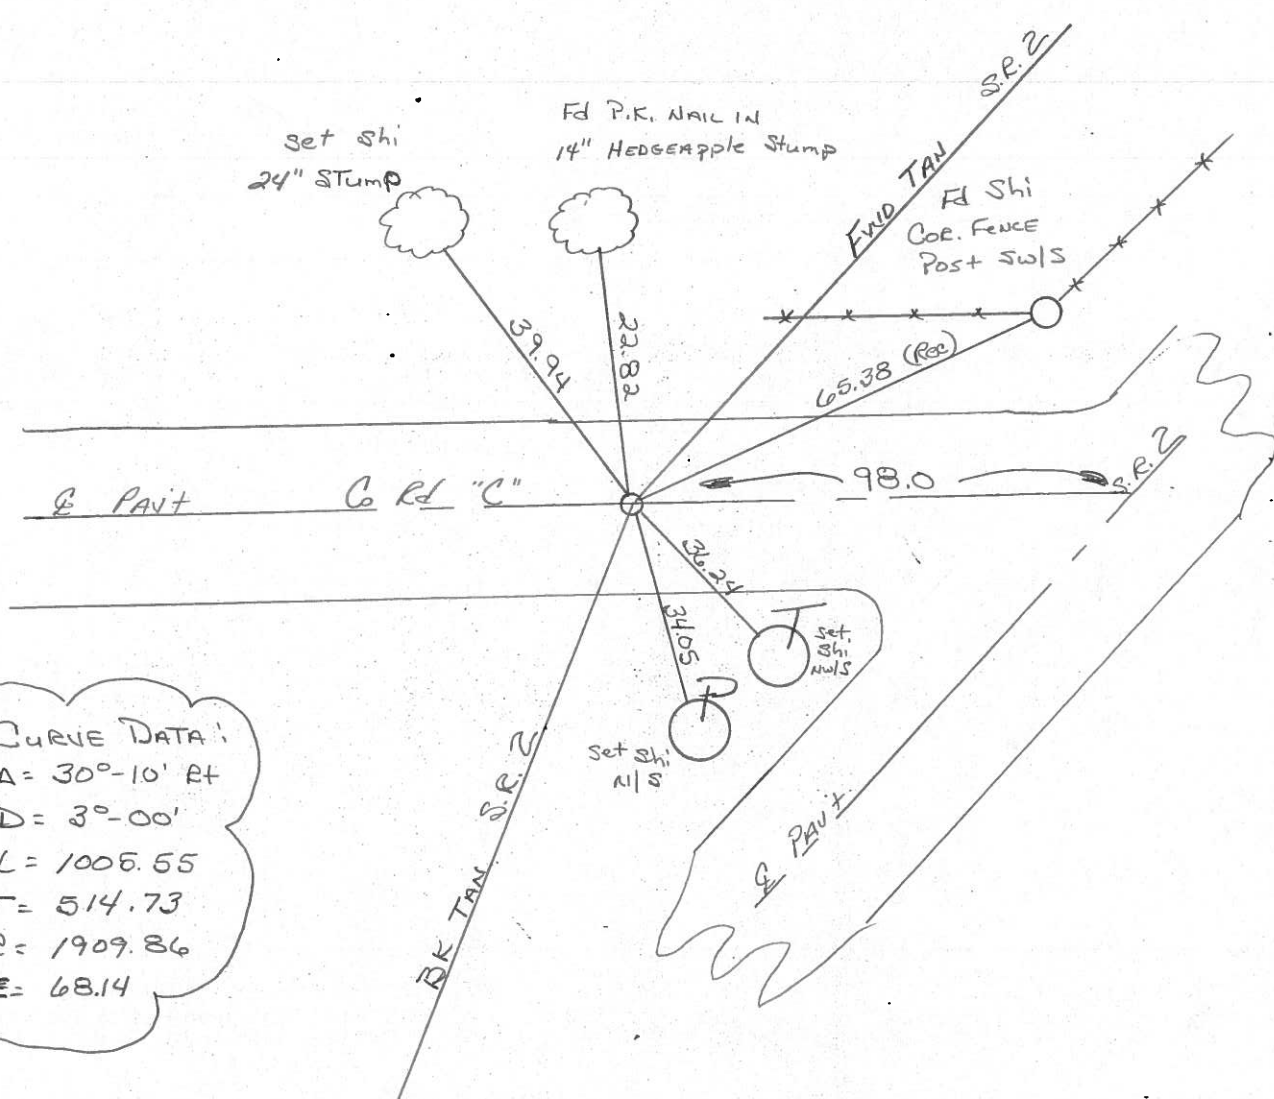 Set Shi
24" Stump
Fd P.K. NAIL IN
14" HEDGEAPPle Stump
FWD TAN S.R. 2
Fd Shi
COR. FENCE
Post SW/S
39.94
22.82
65.38 (Rec)
98.0
S.R. 2
℄ PAV't Co Rd "C"
36.24
34.05
Set
Shi
NW/S
Set Shi
N/S
BK TAN S.R. 2
℄ PAV't
CURVE DATA:
Δ= 30°-10' Rt
D= 3°-00'
L= 1005.55
T= 514.73
R= 1909.86
E= 68.14